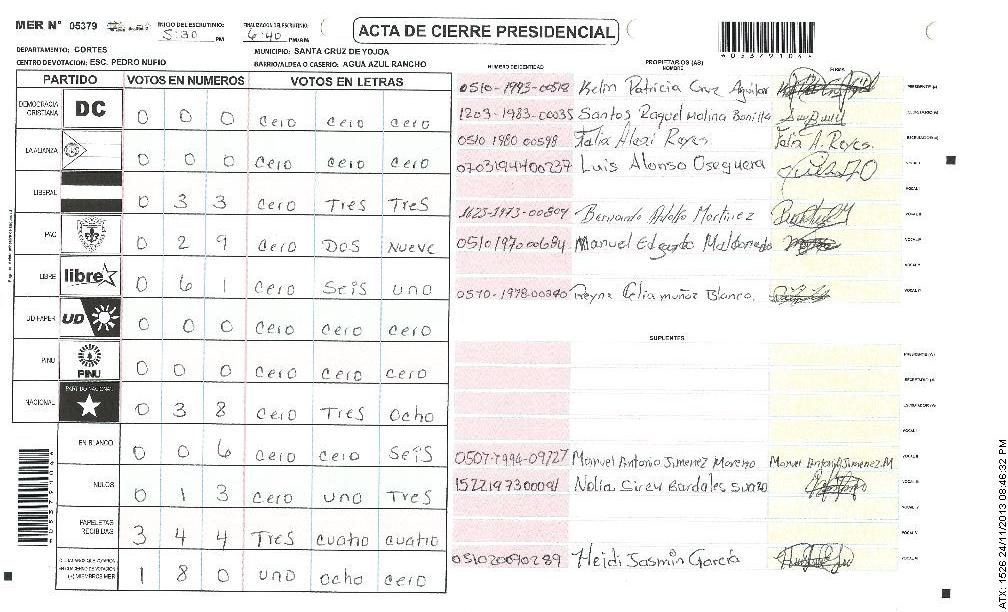 MER N° 05379 INICIO DEL ESCRUTINIO: 5:30 PM FINALIZACION DEL ESCRUTINIO: 6:40 PM/AM ACTA DE CIERRE PRESIDENCIAL
DEPARTAMENTO: CORTES MUNICIPIO: SANTA CRUZ DE YOJOA
CENTRO DE VOTACION: ESC. PEDRO NUFIO BARRIO/ALDEA O CASERIO: AGUA AZUL RANCHO
PARTIDO VOTOS EN NUMEROS VOTOS EN LETRAS
DEMOCRACIA CRISTIANA DC 0 0 0 cero cero cero
LA ALIANZA 0 0 0 cero cero cero
LIBERAL 0 33 cero Tres Tres
PAC 0 2 9 cero DOS Nueve
LIBRE libre 0 6 1 cero SeiS uno
UD FAPER UD 0 0 0 cero cero cero
PINU PINU 0 0 0 cero cero cero
NACIONAL PARTIDO NACIONAL 0 3 8 cero Tres ocho
EN BLANCO 0 0 6 cero cero SeiS
NULOS 0 1 3 cero uno Tres
PAPELETAS RECIBIDAS 3 4 4 Tres cuatro cuatro
1 8 0 uno ocho cero
NUMERO DE IDENTIDAD PROPIETARIOS (AS) NOMBRE FIRMA
0510-1993-00512 Kelin Patricia Cruz Aguilar
1203-1983-00035 Santos Raquel Molina Bonilla
0510 1980 00598 Falia Alexi Reyes Falia A. Reyes.
0703194400237 Luis Alonso Oseguera
1623-1973-00804 Bernardo Adolfo Martinez
0510197000684 Manuel Edgardo Maldonado
0510-1978-00340 Reyna Celia muñoz Blanco.
SUPLENTES
0507-1994-09127 Manuel Antonio Jimenez Moreno Manuel Antonio Jimenez.M
1522197300091 Nolia Sirey Bardales suazo
051020090289 Heidi Jasmin García
ATX: 1526 24/11/2013 08:46:32 PM